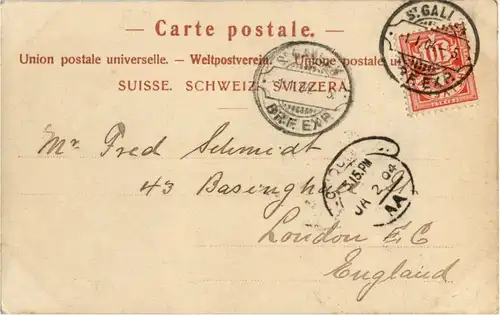 — Carte postale. —
Union postale universelle. — Weltpostverein. — Unione postale u
SUISSE. SCHWEIZ. SVIZZERA.
ST GALL
BRF. EXP.
BRF. EXP.
10
3.15.PM
JA 2 04
AA
Mr Fred Schmidt
43 Basinghall
London E C
England